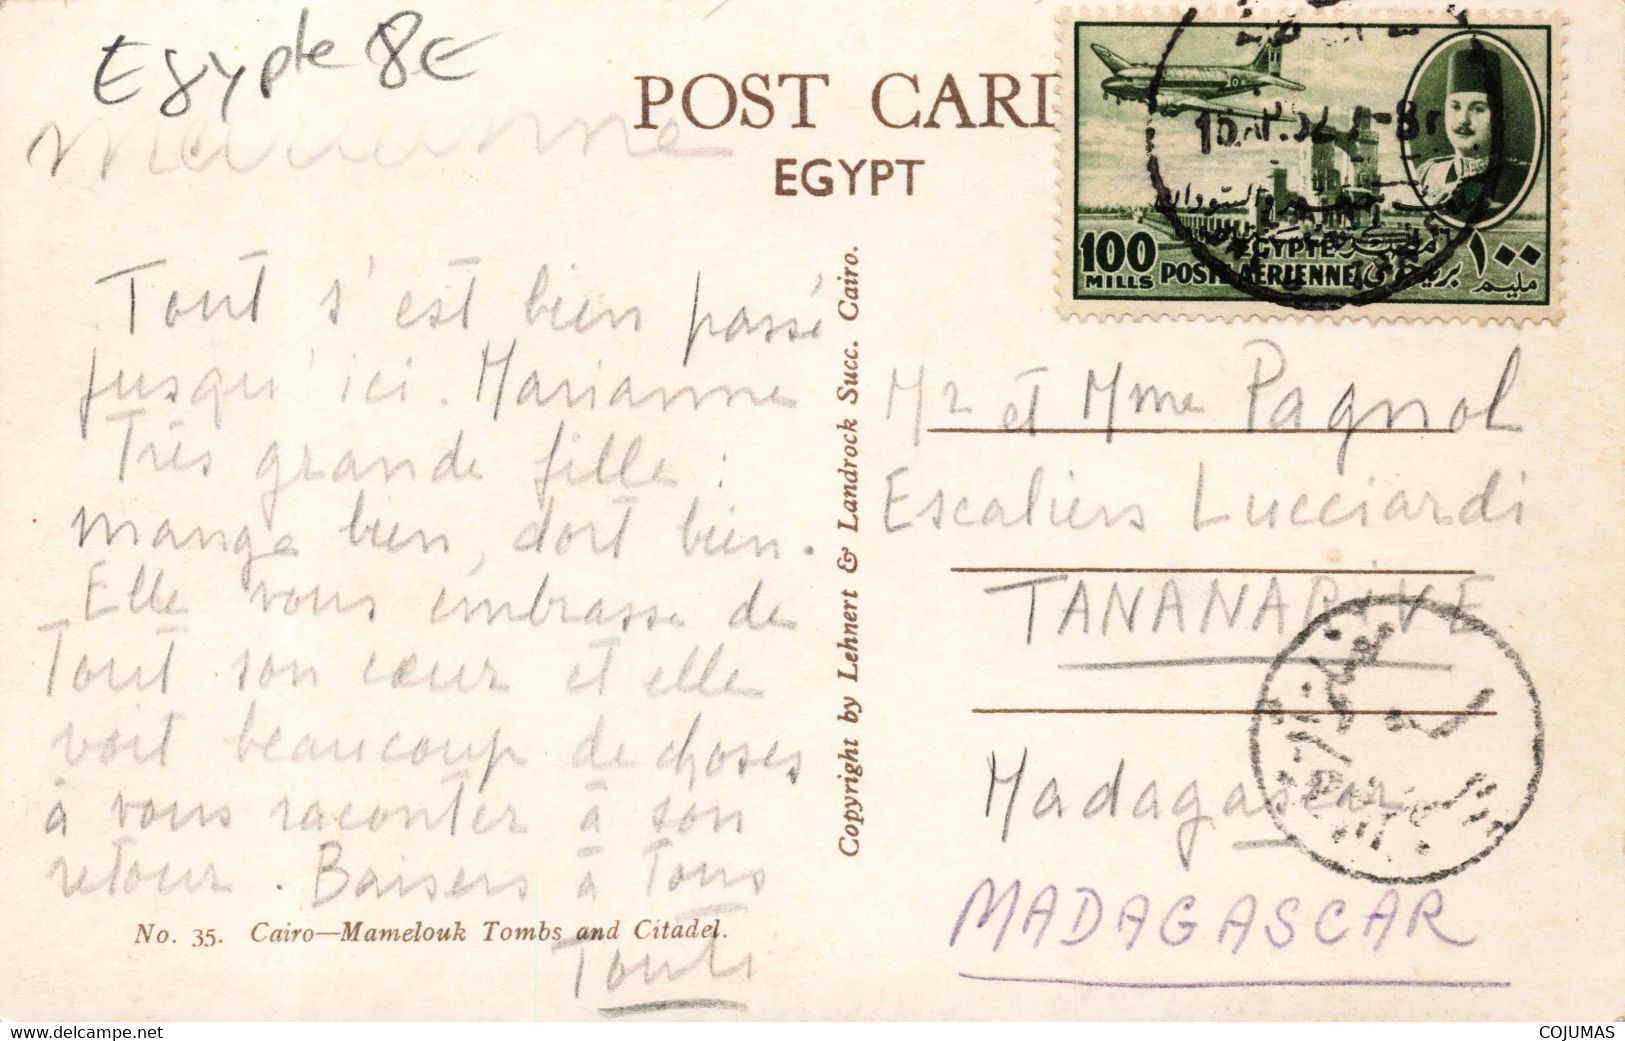 Egypte 8E
Marianne
POST CARD
EGYPT
100
MILLS
EGYPTE
POSTE AERIENNE
١٠٠
مليم
Tout s'est bien passé
jusqu'ici. Marianne
Très grande fille :
mange bien, dort bien.
Elle vous embrasse de
Tout son cœur et elle
voit beaucoup de choses
à vous raconter à son
retour. Baisers à Tous
Copyright by Lehnert & Landrock Succ. Cairo.
Mr et Mme Pagnol
Escaliers Lucciardi
TANANARIVE
Madagascar
MADAGASCAR
No. 35. Cairo—Mamelouk Tombs and Citadel.
www.delcampe.net
COJUMAS